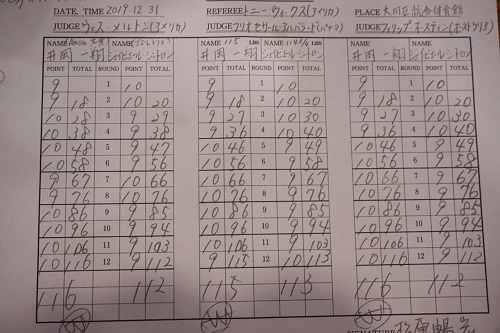 DATE, TIME 2019.12.31 REFEREE トニー・ウィークス(アメリカ) PLACE 大田区総合体育館
JUDGE ウェス・メルトン(アメリカ) JUDGE フリオ・セサール・アルバラード(パナマ) JUDGE フィリップ・ホーステイン(ホストラリア)
NAME NAME 115 LBS NAME 114 3/4 LBS NAME NAME
井岡 一翔 ジェイビエール・シントロン 井岡 一翔 ジェイビエール・シントロン 井岡 一翔 ジェイビエール・シントロン
POINT TOTAL ROUND POINT TOTAL POINT TOTAL ROUND POINT TOTAL POINT TOTAL ROUND POINT TOTAL
9 1 10 9 1 10 9 1 10
9 18 2 10 20 9 18 2 10 20 9 18 2 10 20
10 28 3 9 29 9 27 3 10 30 9 27 3 10 30
10 38 4 9 38 9 36 4 10 40 9 36 4 10 40
10 48 5 9 47 10 46 5 9 49 10 46 5 9 49
10 58 6 9 56 10 56 6 9 58 10 56 6 9 58
9 67 7 10 66 10 66 7 9 67 10 66 7 9 67
9 76 8 10 76 10 76 8 9 76 10 76 8 9 76
10 86 9 9 85 10 86 9 9 85 10 86 9 9 85
10 96 10 9 94 10 96 10 9 94 10 96 10 9 94
10 106 11 9 103 10 106 11 9 103 10 106 11 9 103
10 116 12 9 112 9 115 12 10 113 10 116 12 9 112
116 112 115 113 116 112
W W W
SIGNATURE